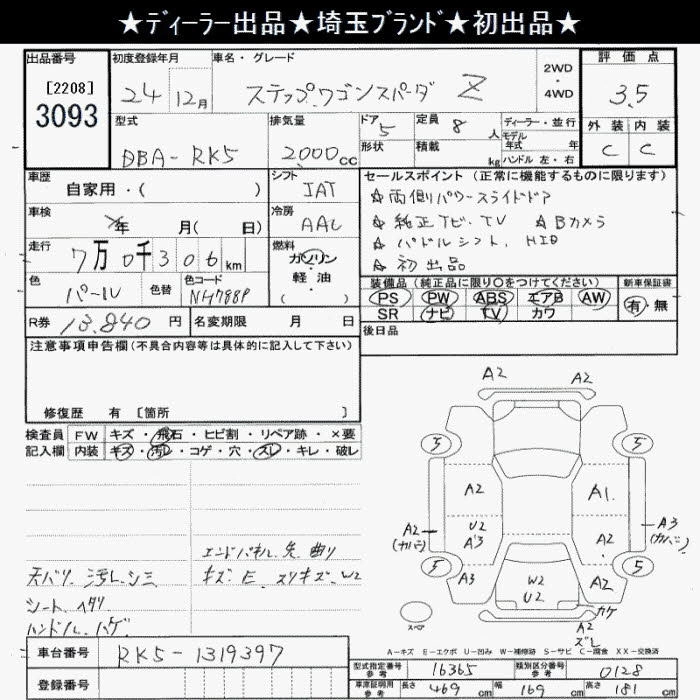 ★ディーラー出品★埼玉ブランド★初出品★
出品番号 初度登録年月 車名・グレード 2WD・4WD 評価点
[2208] 3093 24年12月 ステップワゴンスパーダ Z 3.5
型式 排気量 ドア 5 定員 8人 ディーラー・並行 外装 内装
DBA-RK5 2,000cc 形状 積載 kg モデル年式 年 ハンドル 左・右 C C
車歴 自家用・( ) シフト IAT セールスポイント (正常に機能するものに限ります)
車検 年 月( 日) 冷房 AAC ☆両側パワースライドドア
☆純正ナビ、TV ☆Bカメラ
走行 7万0千306km 燃料 ガソリン・軽油 ( ) ☆パドルシフト、HID
☆初出品
色 パール 色替 色コード NH788P 装備品 (純正品に限り○をつけてください) 新車保証書
PS PW ABS エアB AW 有・無
SR ナビ TV カワ
R券 13,840円 名変期限 月 日 後日品
注意事項申告欄(不具合内容等は具体的に記入して下さい)
修復歴 有 [箇所 ]
検査員 FW キズ・飛石・ヒビ割・リペア跡・×要
記入欄 内装 キズ・汚レ・コゲ・穴・スレ・キレ・破レ
エンドパネル 先 曲り
天バリ 汚レ、シミ キズ E スリキズ W2
シート ヘタリ
ハンドル ハゲ
A2 A2
5 5
A2 A1
A2 (カバー) U2 A3 A2 A3 (カバー)
5 5
A3 W2 U2 A2
カケ
スペア A2 ズレ
A-キズ E-エクボ U-凹み W-補修跡 S-サビ C-腐食 XX-交換済
車台番号 RK5-1319397 型式指定番号 参考 16365 類別区分番号 参考 0128
登録番号 車庫証明用 参考 長さ 469cm 幅 169cm 高さ 181cm